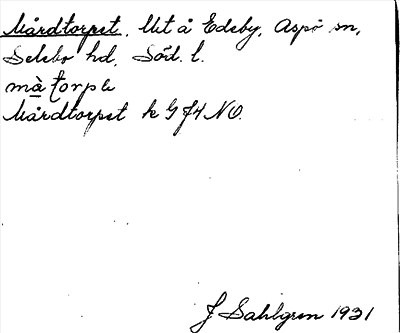 Mårdtorpet, Utt å Edeby, Aspö sn,
Selebo hd, Söd. l.
mà torpe
Mårdtorpet k G f4 NO.
J Sahlgren 1931